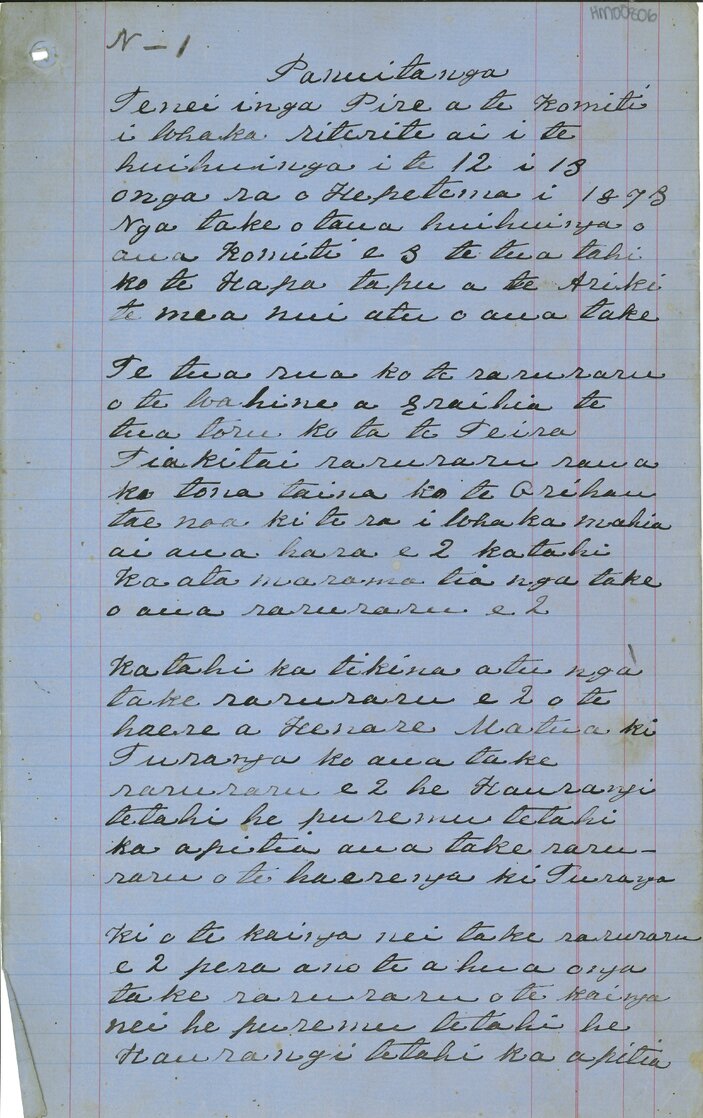 HM00806
N-1
Panuitanga
Tenei inga Pire a te Komiti
i Whaka riterite ai i te
huihuinga i te 12 i 13
onga ra o Hepetema i 1873
Nga take o taua huihuinga o
aua Komiti e 3 te tua tahi
ko te Hapa tapu a te Ariki
te mea nui atu o aua take
Te tua rua ko te raruraru
o te Wahine a Eraihia te
tua toru ko ta te Teira
Tiakitai raruraru raua
ko tona taina ko te Orihau
tae noa ki te ra i Whaka mahia
ai aua hara e 2 katahi
Ka ata marama tia nga take
o aua raruraru e 2
Katahi ka tikina atu nga
take raruraru e 2 o te
haere a Henare Matua ki
Turanga ko aua take
raruraru e 2 he Haurangi
tetahi he puremu tetahi
ka apitia aua take raru-
raru o te haerenga ki Turanga
Ki o te kainga nei take raruraru
e 2 pera ano te ahua onga
take raruraru o te kainga
nei he puremu tetahi he
Haurangi tetahi ka apitia